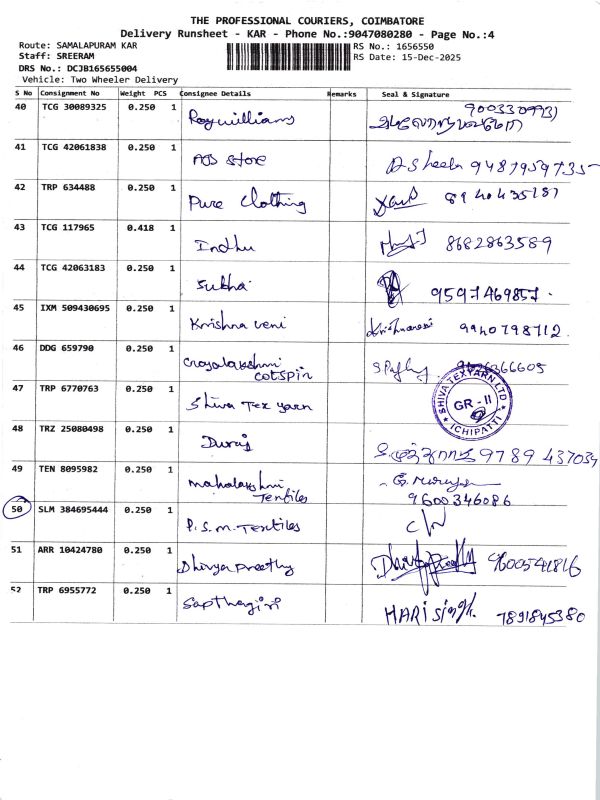 THE PROFESSIONAL COURIERS, COIMBATORE
Delivery Runsheet - KAR - Phone No.:9047080280 - Page No.:4
Route: SAMALAPURAM KAR
RS No.: 1656550
Staff: SREERAM
RS Date: 15-Dec-2025
DRS No.: DCJB165655004
Vehicle: Two Wheeler Delivery
S No Consignment No Weight PCS Consignee Details Remarks Seal & Signature
40 TCG 30089325 0.250 1 Roywilliams
41 TCG 42061838 0.250 1 ADS Store D Sheela 9487959735
42 TRP 634488 0.250 1 Pure Clothing 8940435187
43 TCG 117965 0.418 1 Indhu 8682863589
44 TCG 42063183 0.250 1 Subha 9597469857
45 IXM 509430695 0.250 1 Krishna veni Krishnaveni 9940798712
46 DDG 659790 0.250 1
cotspin
SHIVA TEXYARN LTD
GR - II
ICHIPATTI
47 TRP 6770763 0.250 1 Shiva Tex yarn
48 TRZ 25080498 0.250 1 Duraj 9789 437039
49 TEN 8095982 0.250 1 mahalakshmi
Textiles 9600346086
50 SLM 384695444 0.250 1 P.S.M. Textiles C/N
51 ARR 10424780 0.250 1 Dhivya preethy 9600541816
52 TRP 6955772 0.250 1 Sapthagiri HARi Singh. 7891845380